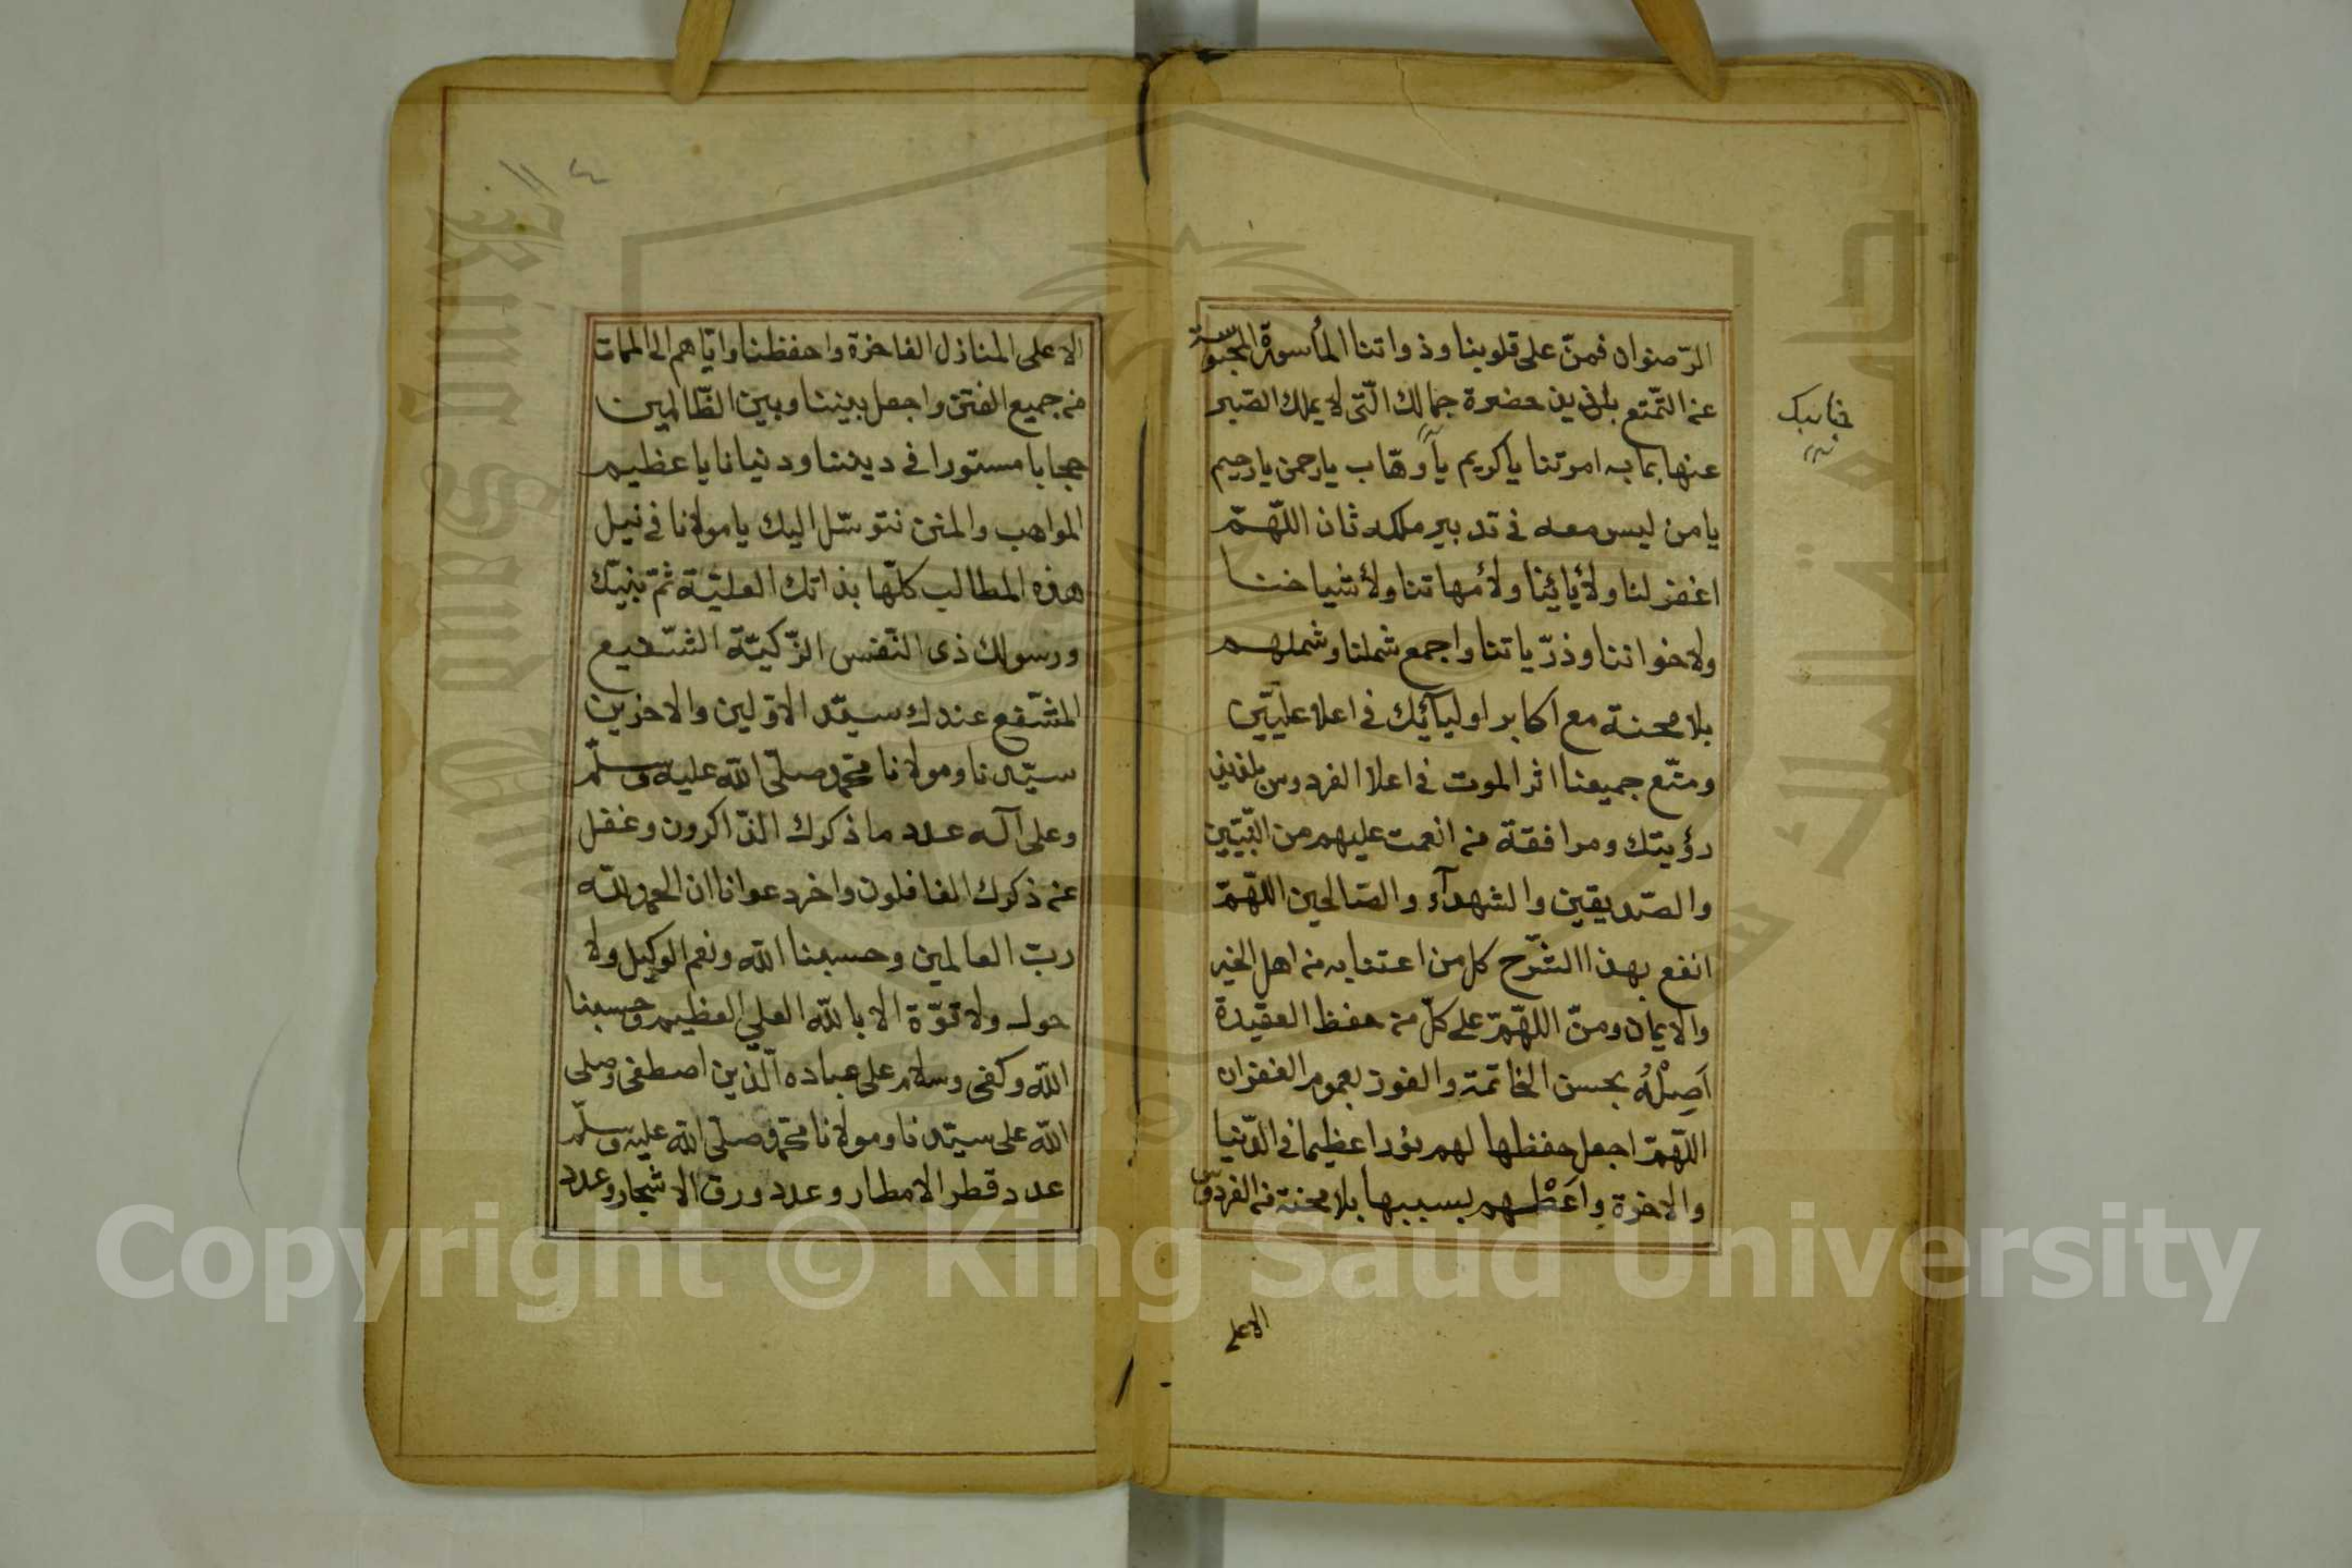 الرّضوان فمنّ على قلوبنا وذواتنا المأسورة المحبوسة
عن التّمتع بلذيذ حضرة جمالك الّتى لا يملك الصّبر
جنابك
عنها بما به امرتنا يا كريم يا وهّاب يا رحمن يا رحيم
يا من ليس معه فى تدبير ملكه ثان اللّهمّ
اغفر لنا ولأبائنا ولأمهاتنا ولأشياخنا
ولاخواننا وذرّياتنا واجمع شملنا وشملهم
بلا محنة مع اكابر اوليآئك فى اعلا علّيّين
ومتّع جميعنا اثر الموت فى اعلا الفردوس بلذيذ
رؤيتك ومرافقة من انعمت عليهم من النّبيّين
والصّديقين والشهدآء والصّالحين اللّهمّ
انفع بهذا الشّرح كل من اعتنا به من اهل الخير
والايمان ومنّ اللّهمّ على كلّ من حفظ العقيدة
اَصِلْهُ بحسن الخاتمة والفوز بعموم الغفران
اللّهمّ اجعل حفظها لهم نورا عظيما فى الدّنيا
والاخرة واَعْطهم بسببها بلا محنة من الفردوس
الاعلى
الاعلى المنازل الفاخرة واحفظنا وايّاهم الى الممات
من جميع الفتن واجعل بيننا وبين الظّالمين
حجابا مستورا فى ديننا ودنيانا يا عظيم
المواهب والمنن نتوسّل اليك يا مولانا فى نيل
هذه المطالب كلّها بذاتك العليّة ثمّ بنبيّك
ورسولك ذى النّفس الزّكيّة الشّفيع
المشّفع عندك سيّد الاوّلين والاخرين
سيّدنا ومولانا محمّد صلّى اللّه عليه وسلّم
وعلى آله عدد ما ذكرك الذّاكرون وغفل
عن ذكرك الغافلون واخر دعوانا ان الحمد للّه
ربّ العالمين وحسبنا اللّه ونعم الوكيل ولا
حول ولا قوّة الا باللّه العلي العظيم وحسبنا
اللّه وكفى وسلام على عباده الّذين اصطفى وصلى
اللّه على سيّدنا ومولانا محمّد صلّى اللّه عليه وسلّم
عدد قطر الامطار وعدد ورق الاشجار وعدد
King Saud University
Copyright © King Saud University